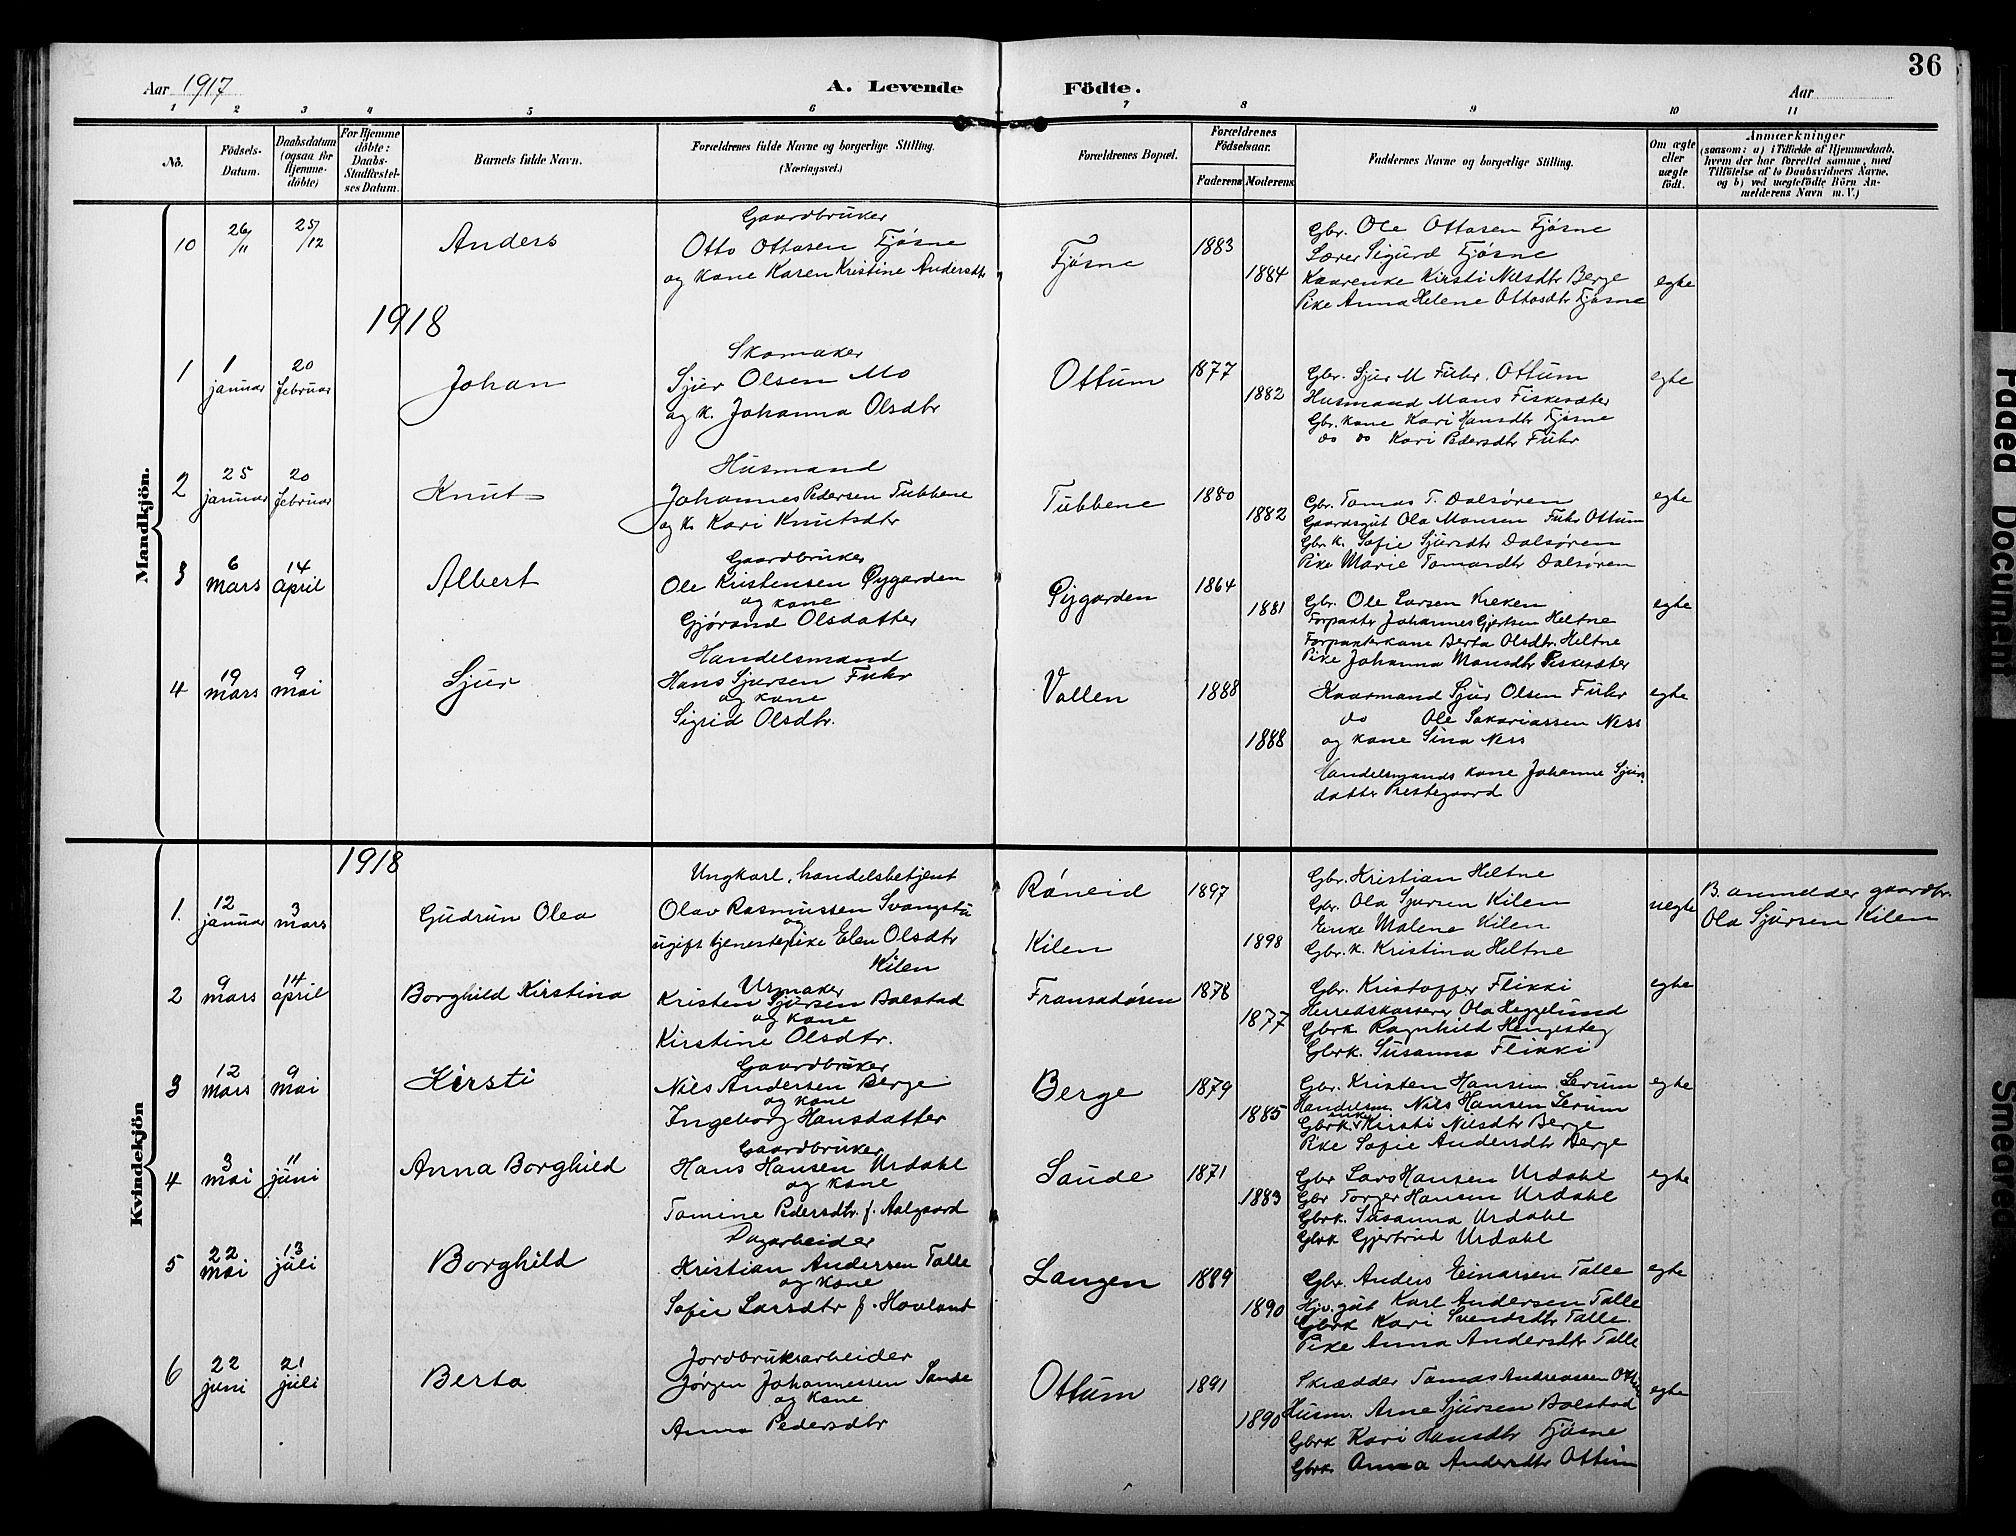 36
Aar 1917
A. Levende Födte.
Aar
1 2 3 4 5 6 7 8 9 10 11
No.
Födsels-Datum.
Daabsdatum (ogsaa for Hjemmedöbte)
For Hjemmedöbte: Daabs-Stadfæstelses Datum.
Barnets fulde Navn.
Forældrenes fulde Navne og borgerlige Stilling. (Næringsvei.)
Forældrenes Bopæl.
Forældrenes Födselsaar.
Faderens Moderens
Faddernes Navne og borgerlige Stilling.
Om ægte eller uægte födt.
Anmærkninger
(saasom: a) i Tilfælde af Hjemmedaab,
hvem der har forrettet samme, med
Tilföielse af to Daabsvidners Navne,
og b) ved uægtefödte Börn An-
melderens Navn m. V.)
Mandkjön.
10 26/11 25/12 Anders
Gaardbruker
Otto Ottosen Fjøsne
og kone Karen Kristine Andersdtr
Fjøsne 1883 1884
Gbr. Ole Ottosen Fjøsne
Lærer Sigurd Fjøsne
Kaarenke Kirsti Nilsdtr Berge
Pike Anna Helene Ottosdtr Fjøsne
egte
1918
1 1 januar 20 februar Johan
Skomaker
Sjur Olsen Mo
og k. Johanna Olsdtr
Ottum 1877 1882
Gbr. Sjur M Fuhr, Ottum
Husmand Mons Fiskesæter
Gbr. kone Kari Hansdtr Fjøsne
do do Kari Pedersdtr Fuhr
egte
2 25 januar 20 februar Knut
Husmand
Johannes Pedersen Tubbene
og k. Kari Knutsdtr
Tubbene 1880 1882
Gbr. Tomas T. Dalsøren
Gaardsgut Ola Monsen Fuhr Ottum
Gbr. k. Sofie Sjursdtr Dalsøren
Pike Marie Tomasdtr Dalsøren
egte
3 6 mars 14 april Albert
Gaardbruker
Ole Kristensen Øygarden
og kone
Gjørand Olsdatter
Øygarden 1864 1881
Gbr. Ole Larsen Kreken
Forpakter Johannes Gjertsen Heltne
Forpakterkone Berta Olsdtr Heltne
Pike Johanna Monsdtr Fiskesæter
egte
4 19 mars 9 mai Sjur
Handelsmand
Hans Sjursen Fuhr
og kone
Sigrid Olsdtr.
Vollen 1888 1888
Kaarmand Sjur Olsen Fuhr
do Ole Sakariassen Ness
og kone Sina Ness
Handelsmands kone Johanne Sjurs-
datter Prestegaard
egte
Kvindekjön
1918
1. 12 januar 3 mars Gudrun Olea
Ungkarl, handelsbetjent
Olav Rasmussen Svangstu
og
ugift tjenestepike Elen Olsdtr
Kilen
Røneid 1897
Kilen 1898
Gbr. Kristian Heltne
Gbr. Ola Sjursen Kilen
Enke Malene Kilen
Gbr. k. Kristina Heltne
uegte
B. anmelder gaardbr.
Ola Sjursen Kilen
2 9 mars 14 april Borghild Kirstina
Urmaker
Kristen Sjursen Bolstad
og kone
Kirstine Olsdtr.
Fransadøren 1878 1877
Gbr. Kristoffer Flikki
Herredskasserer Ola Heggelund
Gbrk. Ragnhild Hengesteg
Gbrk. Susanna Flikki
egte
3 12 mars 9 mai Kirsti
Gaardbruker
Nils Andersen Berge
og kone
Ingeborg Hansdatter
Berge 1879 1885
Gbr. Kristen Hansen Lerum
Handelsm. Nils Hansen Lerum
Gbrk enke Kirsti Nilsdtr Berge
Pike Sofie Andersdtr Berge
egte
4 3 mai 11 juni Anna Borghild
Gaardbruker
Hans Hansen Urdahl
og kone
Tomine Pedersdtr. f. Aalgaard
Saude 1871 1883
Gbr Lars Hansen Urdahl
Gbr Torger Hansen Urdahl
Gbrk. Susanna Urdahl
Gbrk Gjertrud Urdahl
egte
5 22 mai 13 juli Borghild
Dagarbeider
Kristian Andersen Talle
og kone
Sofie Larsdtr f. Hovland
Langen 1889 1890
Gbr. Anders Einarsen Talle
Hjv. gut Karl Andersen Talle
Gbrk Kari Svendsdtr Talle.
Pike Anna Andersdtr Talle
egte
6 22 juni 21 juli Berta
Jordbruksarbeider
Jørgen Johannessen Sande
og kone
Anna Pedersdtr
Ottum 1891 1890
Skrædder Tomas Andreassen
Husm. Arne Sjursen Bolstad
Gbrk Kari Hansdtr Fjøsne
Gbrk. Anna Andersdtr Ottum
egte
Faded Document
Smeared